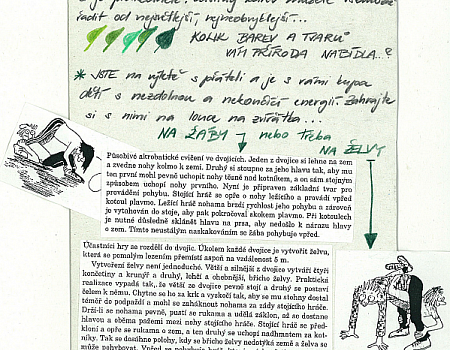 řadit od největší, nejneobyklejší...
KOLIK BAREV A TVARŮ
VÁM PŘÍRODA NABÍDLA..?
* JSTE na výletě s přáteli a je s vámi kupa
dětí s nezdolnou a nekončící energií. Zahrajte
si s nimi na louce na zvířátka...
NA ŽÁBY nebo třeba
NA ŽELVY
Působivé akrobatické cvičení ve dvojicích. Jeden z dvojice si lehne na zem
a zvedne nohy kolmo k zemi. Druhý si stoupne za jeho hlavu tak, aby mu
ten první mohl pevně uchopit nohy těsně nad kotníkem, a on sám stejným
způsobem uchopí nohy prvního. Nyní je připraven základní tvar pro
provádění pohybu. Stojící hráč se opře o nohy ležícího a provádí vpřed
kotoul plavmo. Ležící hráč nohama brzdí rychlost jeho pohybu a zároveň
je vytahován do stoje, aby pak pokračoval skokem plavmo. Při kotoulech
je nutné důsledně sklánět hlavu na prsa, aby nedošlo k nárazu hlavy
o zem. Tímto neustálým naskakováním se žába pohybuje vpřed.
Účastníci hry se rozdělí do dvojic. Úkolem každé dvojice je vytvořit želvu,
která se pomalým lezením přemístí aspoň na vzdálenost 5 m.
Vytvoření želvy není jednoduché. Větší a silnější z dvojice vytváří čtyři
končetiny a krunýř a druhý, lehčí a ohebnější, břicho želvy. Praktická
realizace vypadá tak, že větší ze dvojice pevně stojí a druhý se postaví
čelem k němu. Chytne se ho za krk a vyskočí tak, aby se mu stehny dostal
téměř do podpaždí a mohl se zaháknout nohama za zády stojícího hráče.
Drží-li se nohama pevně, pustí se rukama a udělá záklon, až se dostane
hlavou a oběma pažemi mezi nohy stojícího hráče. Stojící hráč se před-
kloní a opře se rukama o zem, a ten druhý se uchopí nadhmatem za kot-
níky. Tak se dosáhne polohy, kdy se břicho želvy nedotýká země a želva se
může pohybovat.